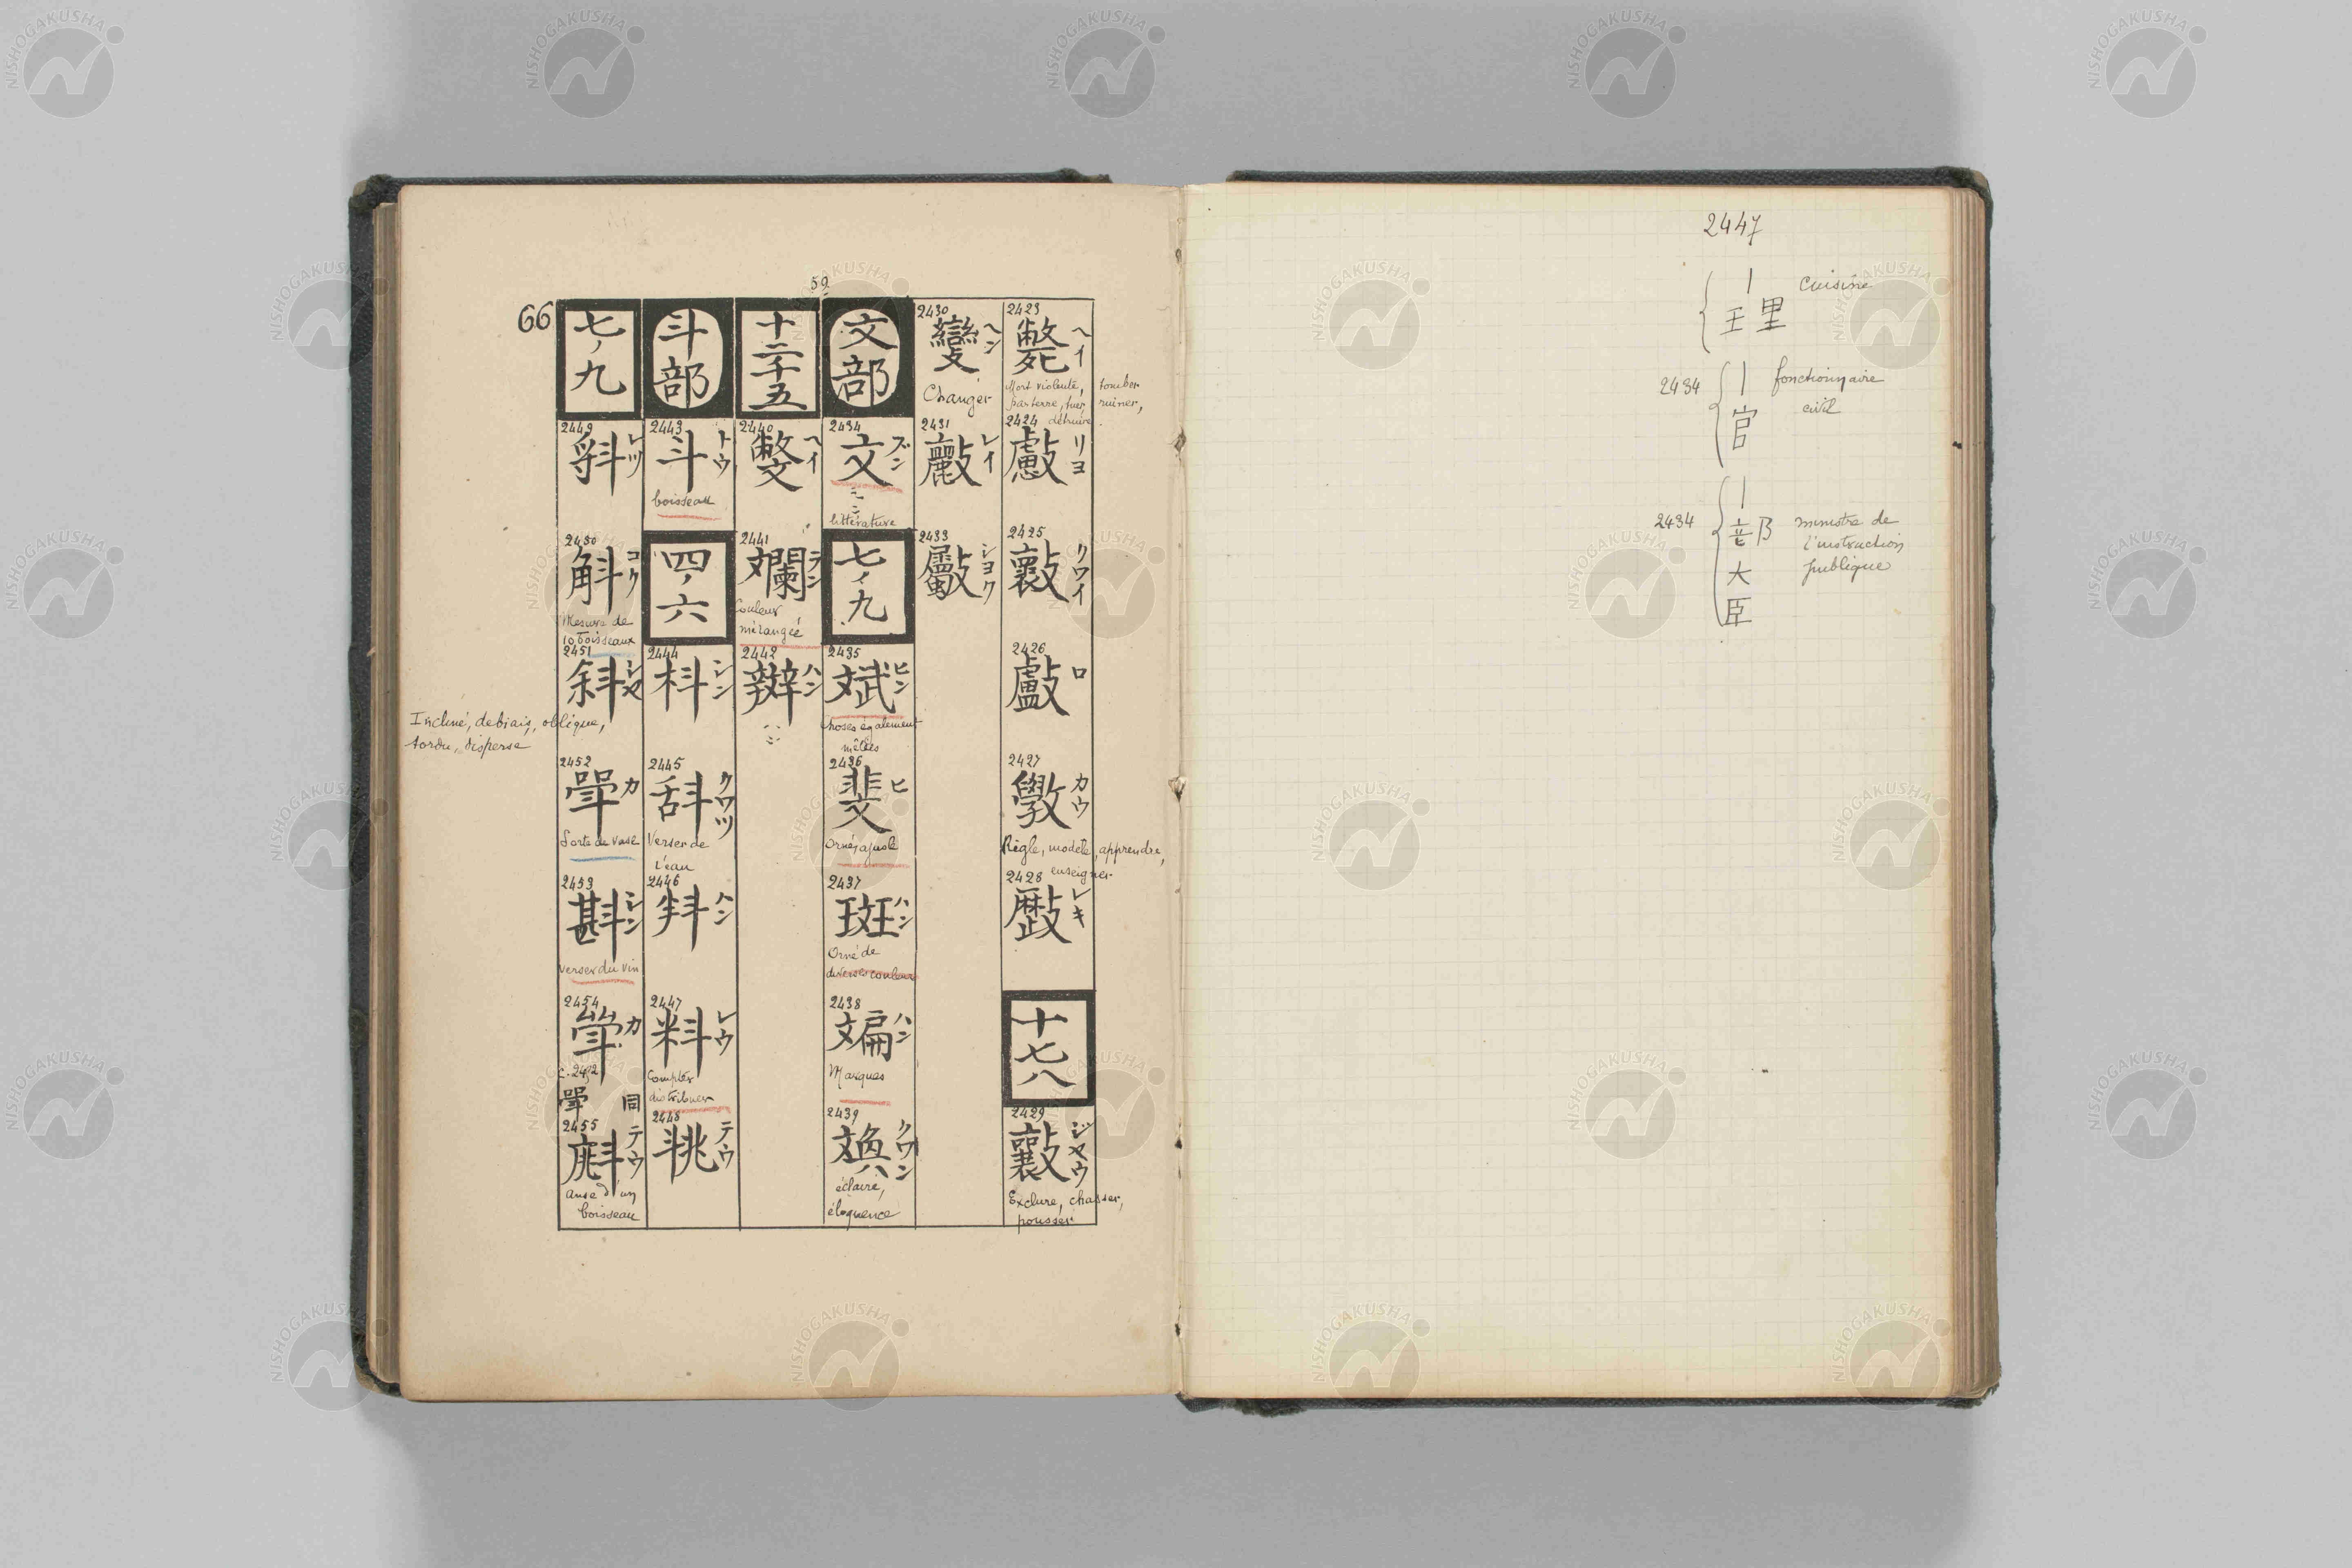 59
66
2423
斃
ヘイ
Mort violente, tomber
par terre, tuer, ruiner,
détruire
2424
リヨ
2425
クワイ
2426
ロ
2427
斆
カウ
Règle, modèle, apprendre,
enseigner
2428
レキ
十七八
2429
ジャウ
Exclure, chasser,
pousser
2430
變
ヘン
Changer
2431
レイ
2433
シヨク
文部
2434
文
ブン
littérature
七ノ九
2435
斌
ヒン
Choses également
mêlées
2436
斐
ヒ
Orné, ajusté
2437
斑
ハン
Orné de
diverses couleurs
2438
斒
ハン
Marques
2439
クワン
éclairé,
éloquence
十二十五
2440
ヘイ
2441
斕
ラン
Couleur
mélangée
2442
ハン
斗部
2443
斗
トウ
boisseau
四ノ六
2444
枓
シン
2445
クワツ
Verser de
l'eau
2446
ハン
2447
料
レウ
Compter
distribuer
2448
テウ
七ノ九
2449
レツ
2450
斛
コク
Mesure de
10 boisseaux
2451
斜
シヤ
Incliné, de biais, oblique,
tordu, disperse
2452
斝
カ
Sorte de vase
2453
斟
シン
Verser du vin
2454
カ
斝 同
2455
テウ
anse d'un
boisseau
2447
｜
理
cuisine
2434
｜
官
fonctionnaire
civil
2434
｜
部
大
臣
ministre de
l'instruction
publique
NISHOGAKUSHA